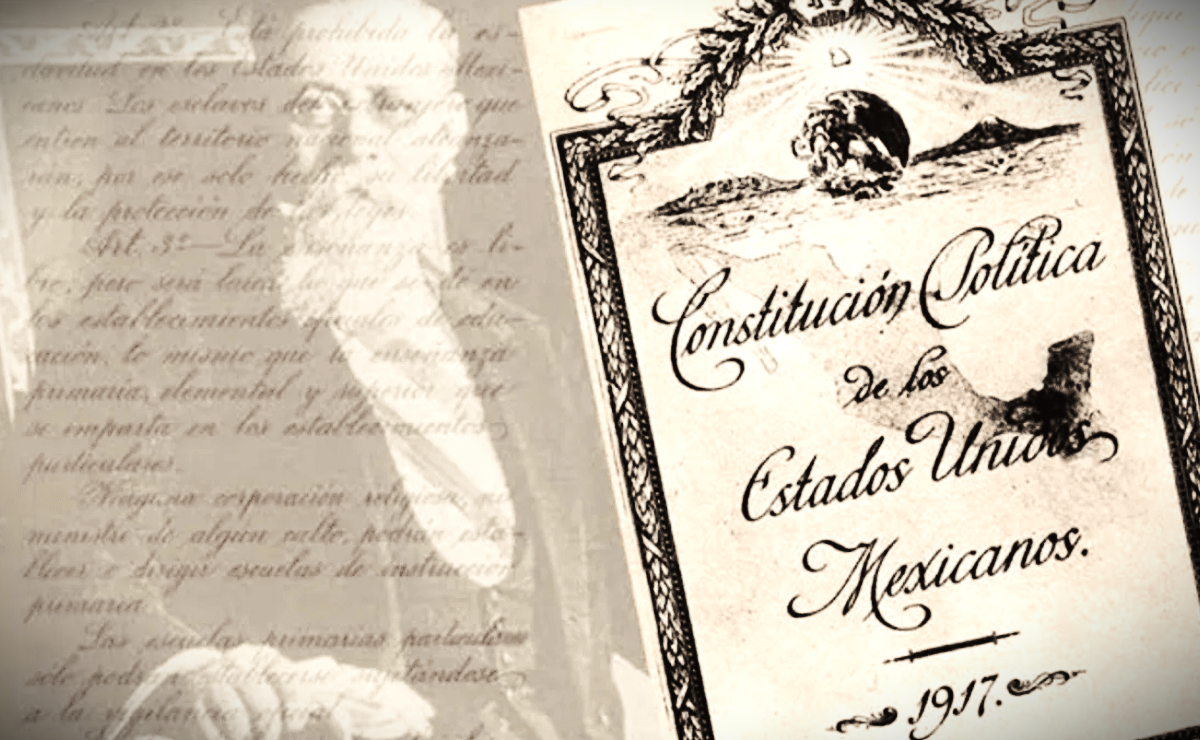 Art. 2º Está prohibida la es-
clavitud en los Estados Unidos Mexi-
canos. Los esclavos del extranjero que
entren al territorio nacional alcanza-
rán, por ese solo hecho, su libertad
y la protección de las leyes.
Art. 3º—La enseñanza es li-
bre, pero será laica la que se dé en
los establecimientos oficiales de edu-
cación, lo mismo que la enseñanza
primaria, elemental y superior que
se imparta en los establecimientos
particulares.
Ninguna corporación religiosa, ni
ministro de algún culto, podrán esta-
blecer o dirigir escuelas de instrucción
primaria.
Las escuelas primarias particulares
sólo podrán establecerse sujetándose
a la vigilancia oficial
Constitución Política
de los
Estados Unidos
Mexicanos.
1917.